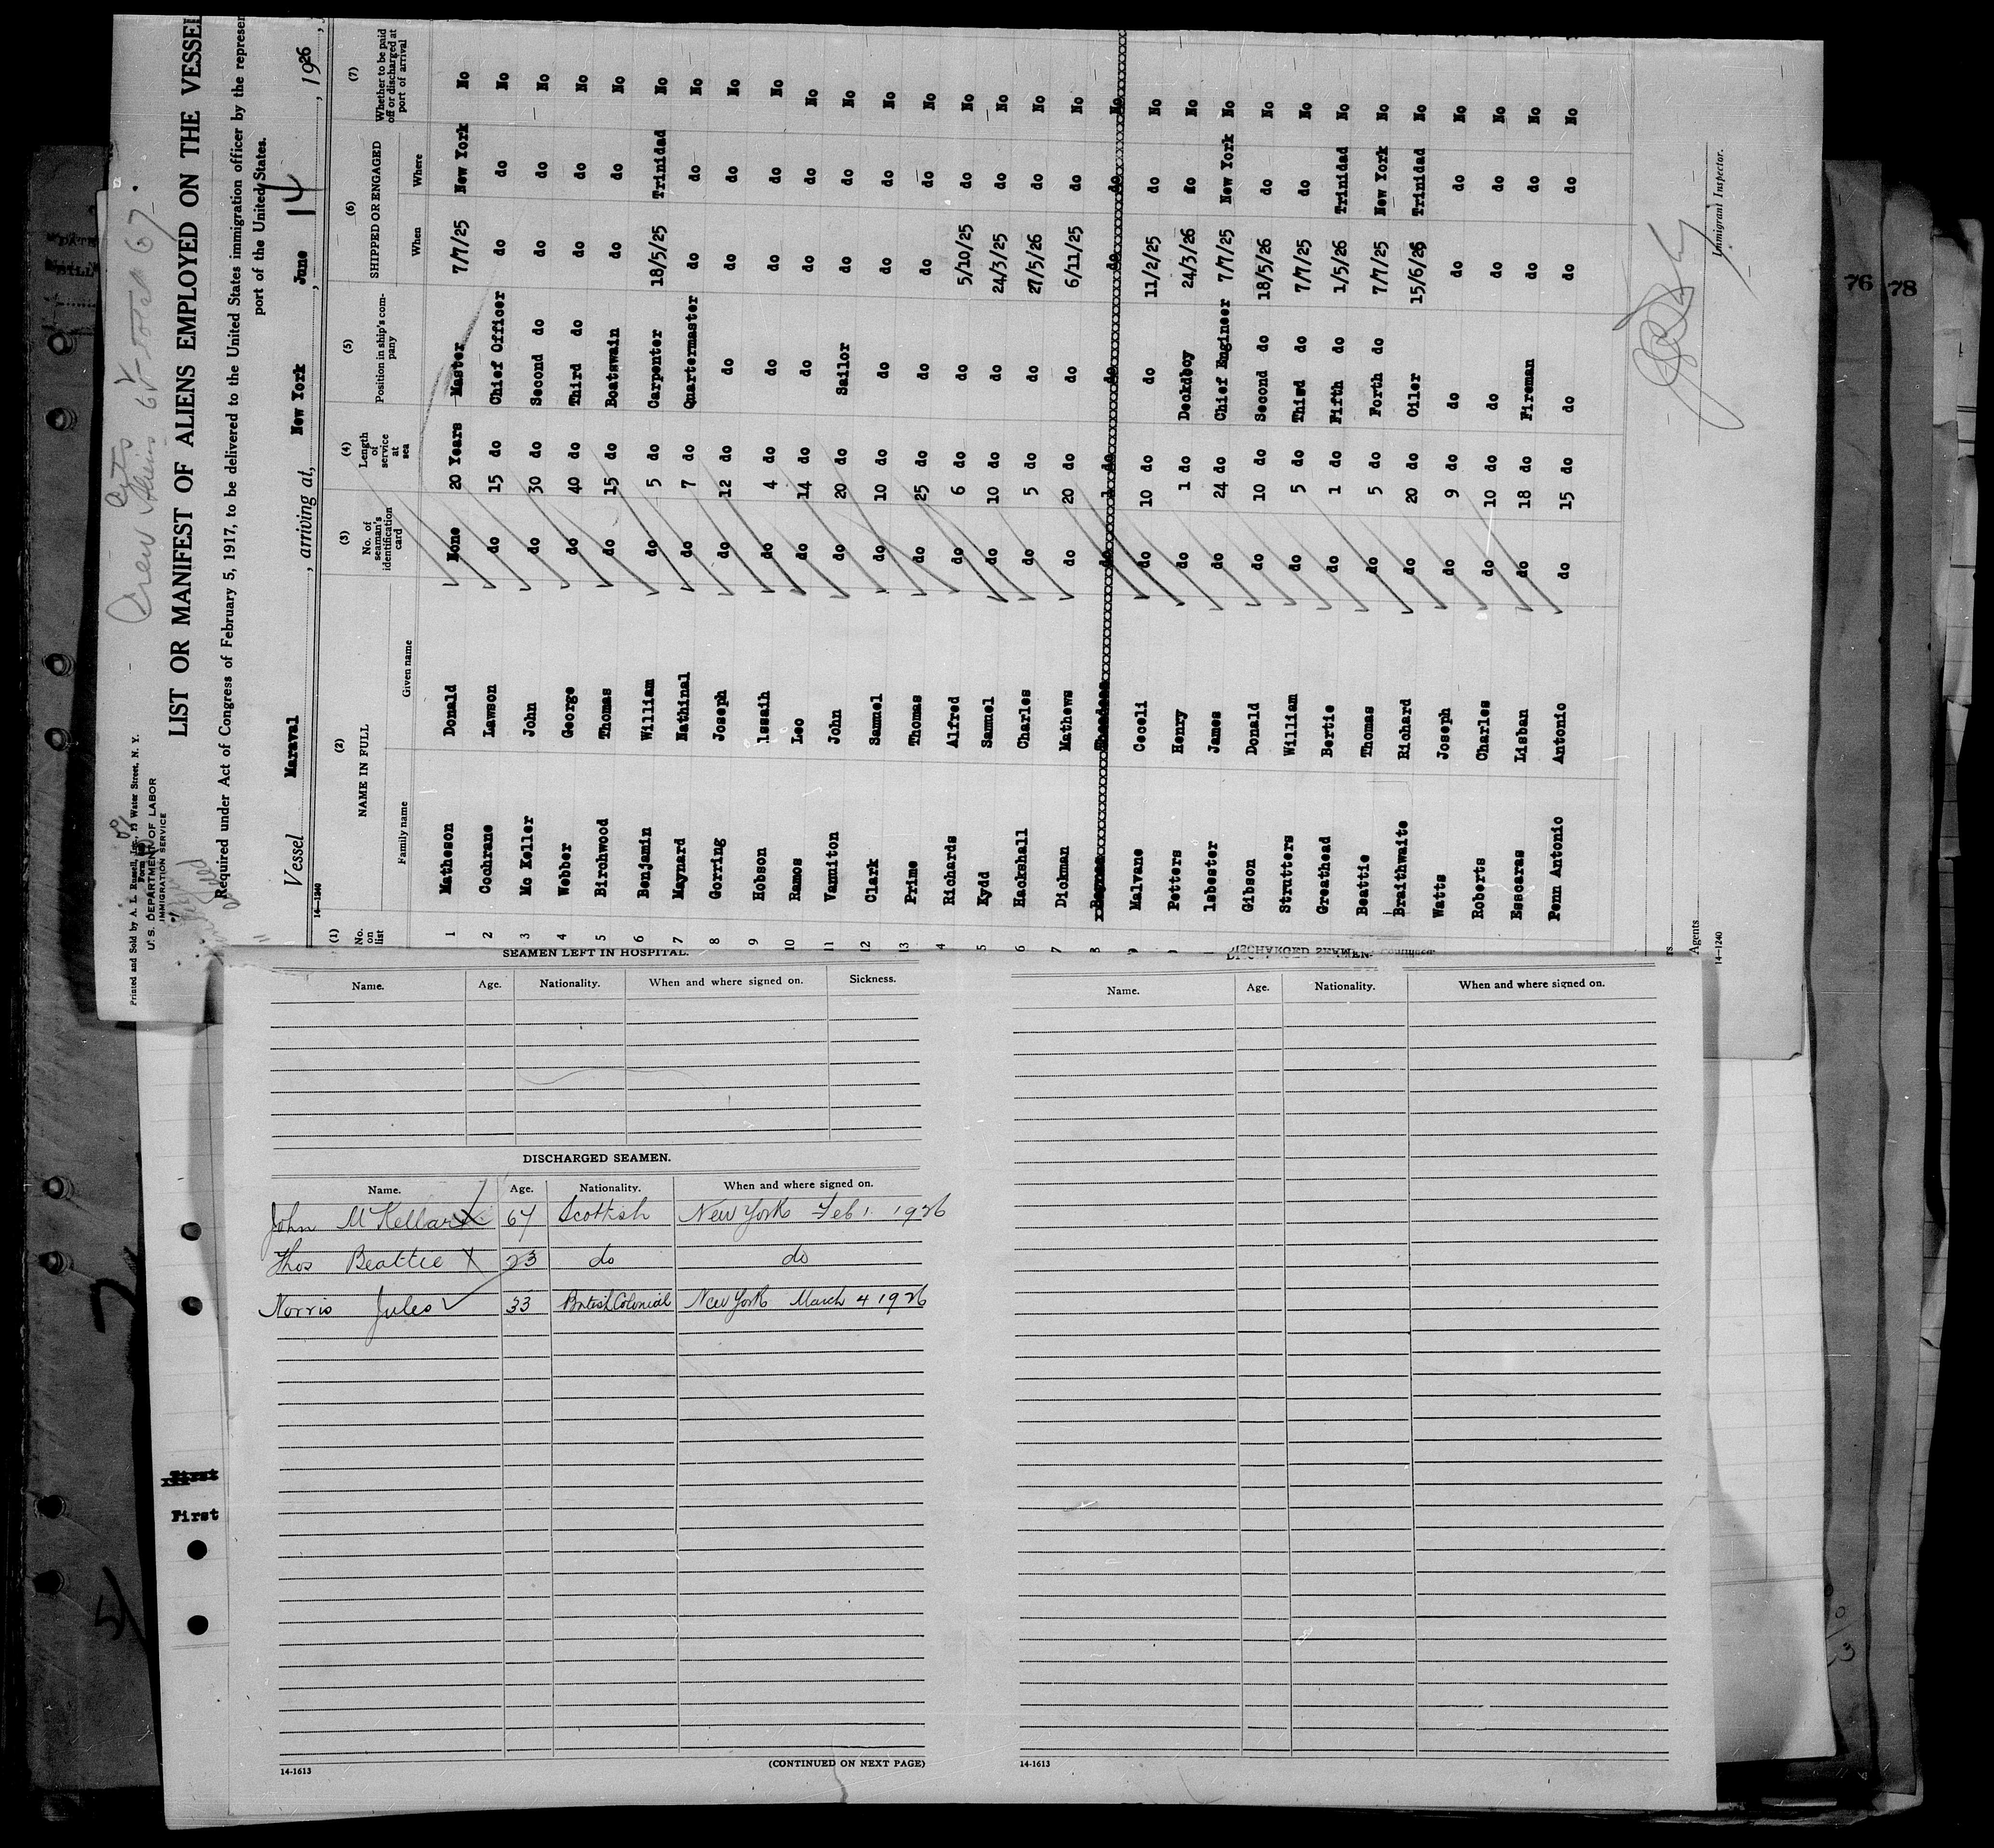 Printed and Sold by A. L. Russell, Inc., 15 Water Street, N. Y.
U. S. DEPARTMENT OF LABOR
IMMIGRATION SERVICE
Crew
LIST OR MANIFEST OF ALIENS EMPLOYED ON THE VESSEL
Required under Act of Congress of February 5, 1917, to be delivered to the United States immigration officer by the represen
port of the United States.
Vessel Maraval, arriving at, New York, June 14, 1926
14—1240
(1) No. on list (2) NAME IN FULL Family name Given name (3) No. of seaman's identification card (4) Length of service at sea (5) Position in ship's company (6) SHIPPED OR ENGAGED When Where (7) Whether to be paid off or discharged at port of arrival
1 Matheson Donald None 20 Years Master 7/7/25 New York No
2 Cochrane Lawson do 15 do Chief Officer do do No
3 Mc Keller John do 30 do Second do do do No
4 Webber George do 40 do Third do do do No
5 Birchwood Thomas do 15 do Boatswain do do No
6 Benjamin William do 5 do Carpenter 18/5/25 Trinidad No
7 Maynard Nathinal do 7 do Quartermaster do do No
8 Gorring Joseph do 12 do do do do No
9 Hobson lssaih do 4 do do do do No
10 Ramos Leo do 14 do do do do No
11 Vanmiton John do 20 do Sailor do do No
12 Clark Samuel do 10 do do do do No
13 Prime Thomas do 25 do do do do No
4 Richards Alfred do 6 do do 5/10/25 do No
5 Kydd Samuel do 10 do do 24/3/25 do No
6 Hackshall Charles do 5 do do 27/5/26 do No
7 Dickman Mathews do 20 do do 6/11/25 do No
8 do 1 do do do do No
9 Malvane Ceceli do 10 do do 11/2/25 do No
Petters Henry do 1 do Deckdboy 24/3/26 do No
lsbester James do 24 do Chief Engineer 7/7/25 New York No
Gibson Donald do 10 do Second do 18/5/26 do No
Strutters William do 5 do Third do 7/7/25 do No
Greathead Bertie do 1 do Fifth do 1/5/26 Trinidad No
Beattie Thomas do 5 do Forth do 7/7/25 New York No
Braithwaite Richard do 20 do Oiler 15/6/26 Trinidad No
Watts Joseph do 9 do do do do No
Roberts Charles do 10 do do do do No
Esscaras Lisban do 18 do Fireman do do No
Penn Antonio Antonio do 15 do do do do No
Immigrant Inspector.
Agents
14—1240
76 78
SEAMEN LEFT IN HOSPITAL.
Name. Age. Nationality. When and where signed on. Sickness.
DISCHARGED SEAMEN.
Name. Age. Nationality. When and where signed on.
John McKellar X 67 Scottish New York Feb 1. 1926
Thos Beattie X 23 do do
Norris Jules 33 British Colonial New York March 4 1926
(CONTINUED ON NEXT PAGE)
14-1613
DISCHARGED SEAMEN.
Name. Age. Nationality. When and where signed on.
14-1613
First
First